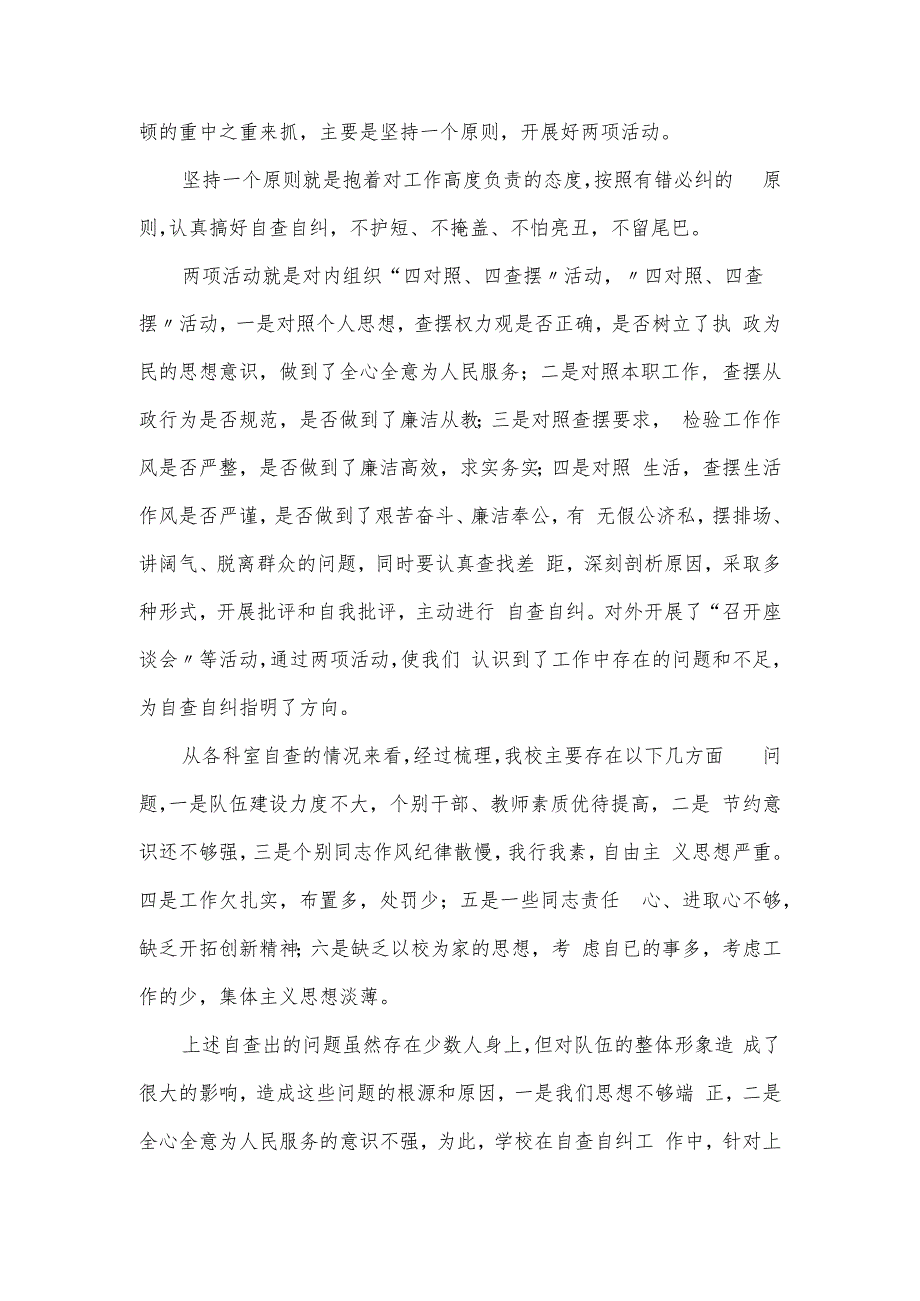 顿的重中之重来抓，主要是坚持一个原则，开展好两项活动。
坚持一个原则就是抱着对工作高度负责的态度,按照有错必纠的 原
则,认真搞好自查自纠，不护短、不掩盖、不怕亮丑，不留尾巴。
两项活动就是对内组织“四对照、四查摆〃活动，〃四对照、四查
摆〃活动，一是对照个人思想，查摆权力观是否正确，是否树立了执 政为
民的思想意识，做到了全心全意为人民服务；二是对照本职工作，查摆从
政行为是否规范，是否做到了廉洁从教；三是对照查摆要求， 检验工作作
风是否严整，是否做到了廉洁高效，求实务实；四是对照 生活，查摆生活
作风是否严谨，是否做到了艰苦奋斗、廉洁奉公，有 无假公济私，摆排场、
讲阔气、脱离群众的问题，同时要认真查找差 距，深刻剖析原因，采取多
种形式，开展批评和自我批评，主动进行 自查自纠。对外开展了“召开座
谈会〃等活动,通过两项活动,使我们 认识到了工作中存在的问题和不足，
为自查自纠指明了方向。
从各科室自查的情况来看,经过梳理，我校主要存在以下几方面 问
题,一是队伍建设力度不大，个别干部、教师素质优待提高，二是 节约意
识还不够强，三是个别同志作风纪律散慢，我行我素，自由主 义思想严重。
四是工作欠扎实，布置多，处罚少；五是一些同志责任 心、进取心不够，
缺乏开拓创新精神；六是缺乏以校为家的思想，考 虑自已的事多，考虑工
作的少，集体主义思想淡薄。
上述自查出的问题虽然存在少数人身上,但对队伍的整体形象造 成了
很大的影响，造成这些问题的根源和原因，一是我们思想不够端 正，二是
全心全意为人民服务的意识不强，为此，学校在自查自纠工 作中，针对上